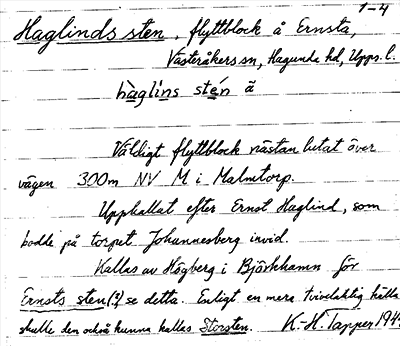 1-4
Haglinds sten, flyttblock å Ernsta,
Västeråkers sn, Hagunda hd, Upps. l.
hàglins stén ã
Väldigt flyttblock nästan lutat över
vägen 300m NV M i Malmtorp.
Upphallat efter Ernst Haglind, som
bodde på torpet Johannesberg invid.
Kallas av Högberg i Björkhamn för
Ernsts sten(?) se detta. Enligt en mera tvivelaktig källa
skulle den också kunna kallas Storsten. K.-H. Tapper 194